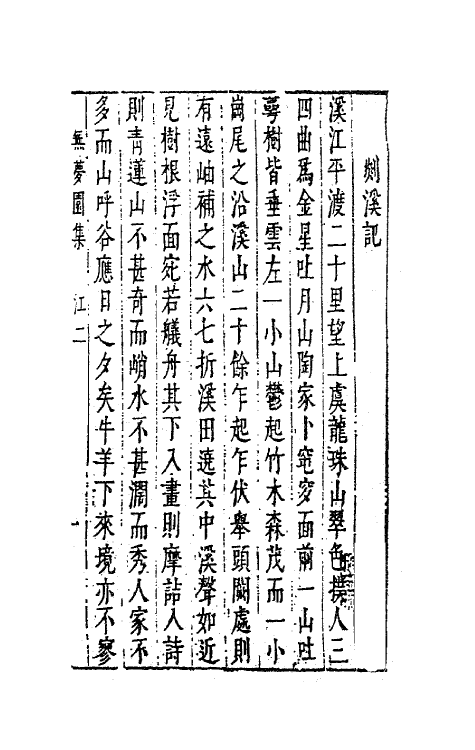 剡溪記
溪江平渡二十里望上虞龍珠山翠色撲人三
四曲爲金星吐月山陶家卜窀穸面前一山吐
萼樹皆垂雲左一小山鬱起竹木森茂而一小
崗尾之沿溪山二十餘乍起乍伏舉頭闕處則
有遠岫補之水六七折溪田遶其中溪聲如近
見樹根浮面宛若艤舟其下入畫則摩詰入詩
則青蓮山不甚奇而峭水不甚濶而秀人家不
多而山呼谷應日之夕矣牛羊下來境亦不寥
無夢園集 江二 一